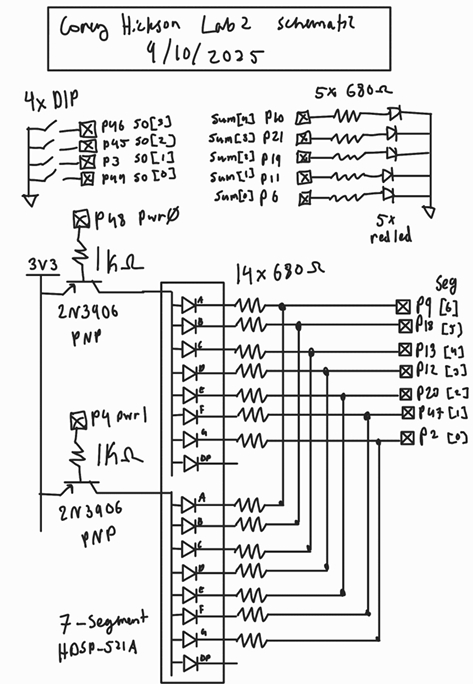 Corey Hickson Lab2 schematic
9/10/2025
4x DIP
P46 S0[3]
P45 S0[2]
P3 S0[1]
P44 S0[0]
5x 680Ω
Sum[4] P10
Sum[3] P21
Sum[2] P19
Sum[1] P11
Sum[0] P6
5x
red led
P48 pwr0
1KΩ
3V3
2N3906
PNP
14x680Ω
A
B
C
D
E
F
G
DP
Seg
P9 [6]
P18 [5]
P13 [4]
P12 [3]
P20 [2]
P47 [1]
P2 [0]
P4 pwr1
1KΩ
2N3906
PNP
A
B
C
D
E
F
G
DP
7-Segment
HDSP-521A